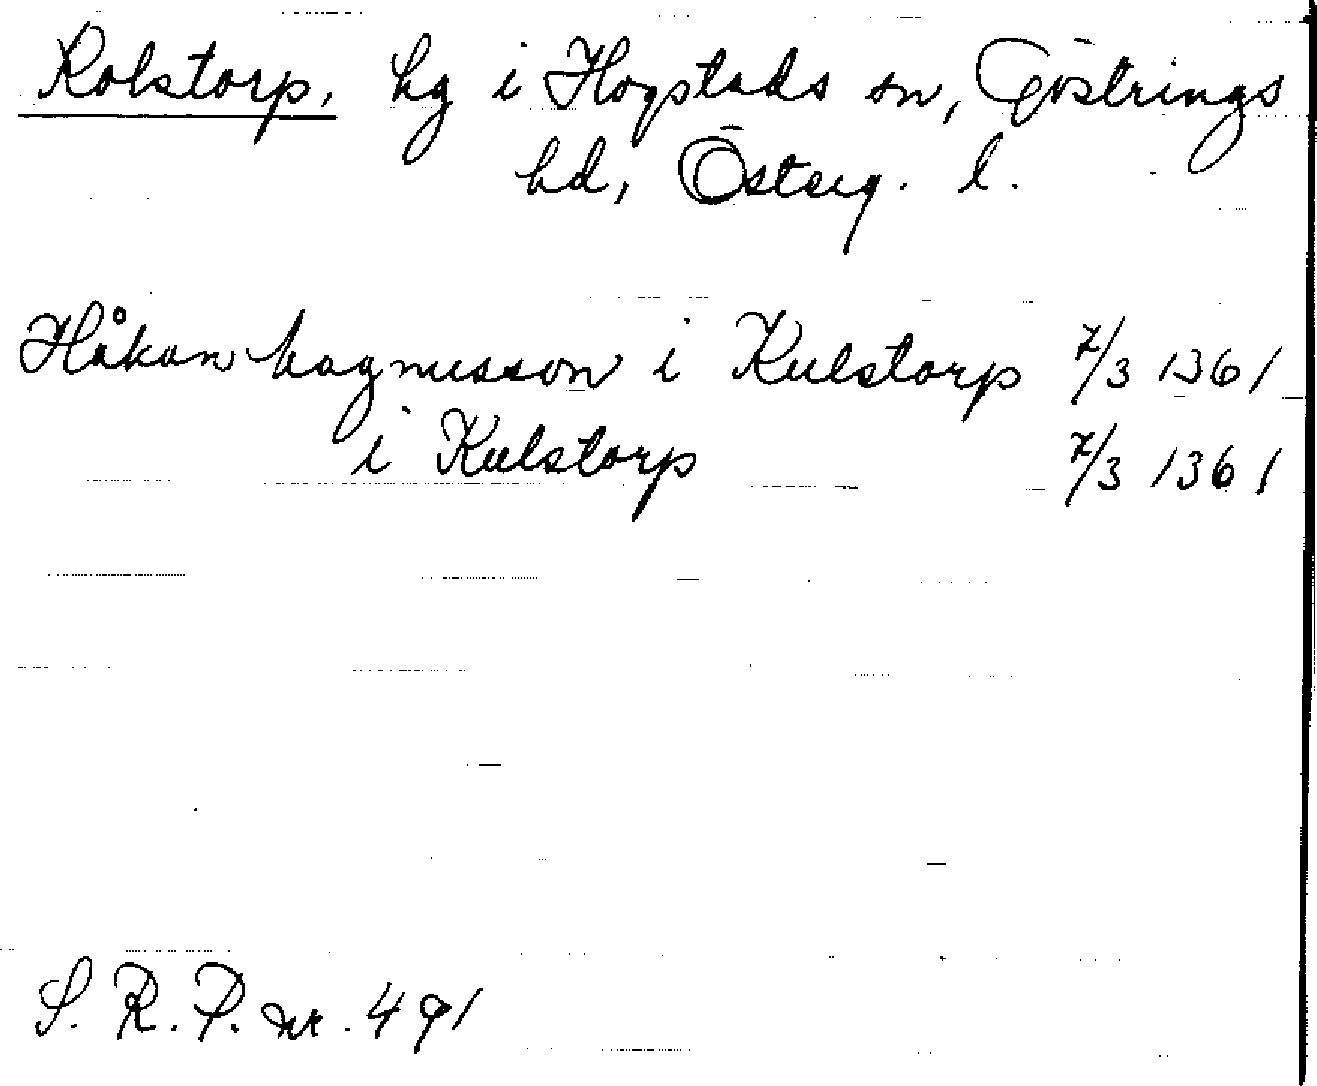 Rolstorp, hg i Hogstads sn, Göstrings
hd, Österg. l.
Håkan hagmusson i Kulstorp 7/3 1361
i Kulstorp 7/3 1361
S. R. P. nr. 491